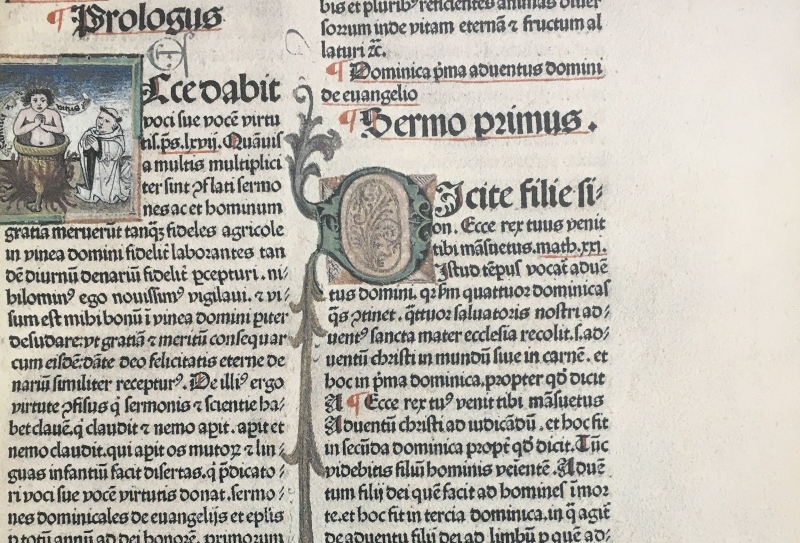 Prologus
Ecce dabit
voci sue vocē virtu
tis.ps.lxvij. Quāuis
a multis multiplici
ter sint ꝯflati sermo
nes ac et hominum
gratia meruerūt tanqȝ fideles agricole
in vinea domini fidelit̄ laborantes tan
dē diurnū denariū fidelit̄ ꝑcepturi.ni⸗
hilominꝰ ego nouissimꝰ vigilaui.⁊ vi⸗
sum est mihi bonū ī vinea domini ꝑiter
desudare:vt gratiā ⁊ meritū consequar
cum eisdē:dāte deo felicitatis eterne de
nariū similiter recepturꝰ. De illiꝰ ergo
virtute ꝯfisus q̇ sermonis ⁊ scientie ha⸗
bet clauē.q̇ claudit ⁊ nemo aꝑit.aꝑit et
nemo claudit.qui aꝑit os mutoꝝ ⁊ lin⸗
guas infantiū facit disertas.q̇ p̄dicato⸗
ri voci sue vocē virtutis donat.sermo⸗
nes dominicales de euangelijs et ep̄lis
ꝑ totū annū ad dei honorē. primorum
bis et pluribꝰ reficientes animas
sorum inde vitam eternā ⁊ fructum al
laturi ⁊c̄.
¶ Dominica p̄ma aduentus domini
de euangelio
¶ Sermo primus.
Dicite filie si⸗
on. Ecce rex tuus venit
tibi māsuetus.math.xxi.
Istud tēpus vocat̄ aduē
tus domini. qr̄ hm̄ quattuor dominicas
q̄s ꝯtinet. q̄ttuor saluatoris nostri ad⸗
uentꝰ sancta mater ecclesia recolit.s.ad⸗
uentū christi in mundū siue in carnē. et
hoc in p̄ma dominica.propter qd̄ dicit
A ¶ Ecce rex tuꝰ venit tibi māsuetus
Aduentū christi ad iudicādū.et hoc fit
in secūda dominica propt̄ qd̄ dicit. Tūc
videbitis filiū hominis veientē. Aduē
tum filij dei quē facit ad hominēs ī mor
te.et hoc fit in tercia dominica.in q̄ agit̄
de aduentu filij dei ad limbū ꝑ quē ad⸗